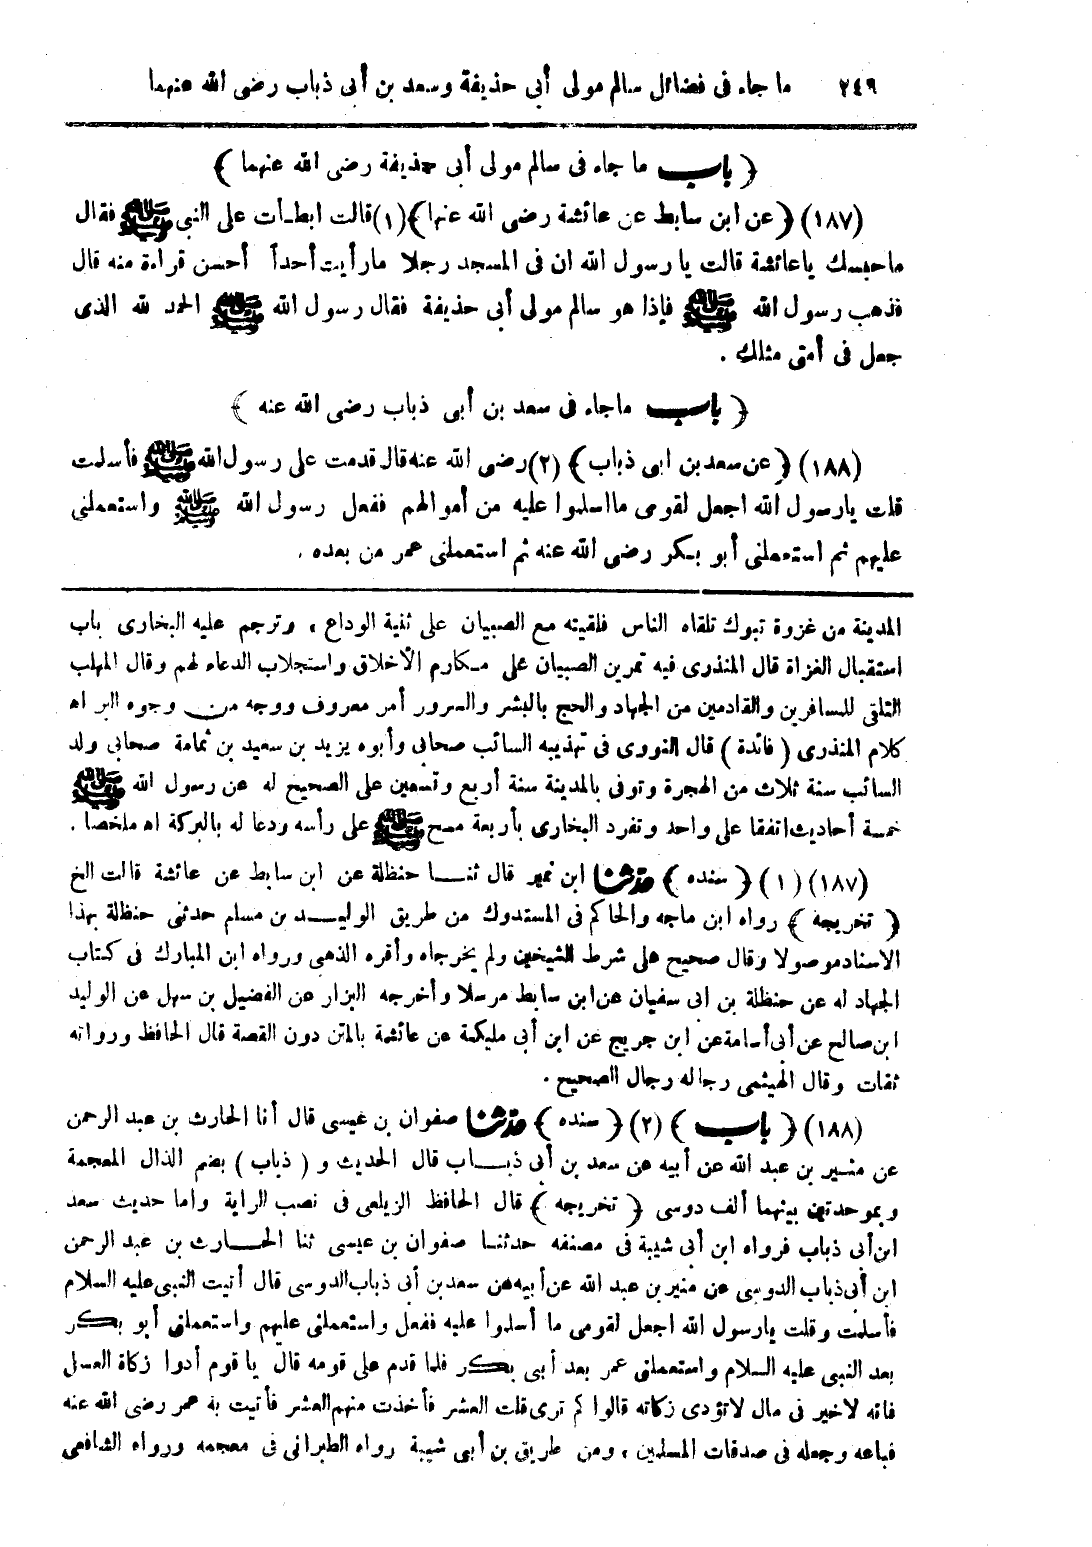 ٢٤٩ ما جاء فى فضائل سالم مولى أبى حذيفة وسعد بن أبى ذباب رضى الله عنهما
﴿ باب ما جاء فى سالم مولى أبى حذيفة رضى الله عنهما ﴾
(١٨٧) ﴿ عن ابن سابط عن عائشة رضى الله عنها ﴾ (١) قالت ابطأت على النبى ﷺ فقال
ما حبسك ياعائشة قالت يا رسول الله ان فى المسجد رجلا ما رأيت أحداً أحسن قراءة منه قال
فذهب رسول الله ﷺ فإذا هو سالم مولى أبى حذيفة فقال رسول الله ﷺ الحمد لله الذى
جعل فى أمتى مثلك .
﴿ باب ماجاء فى سعد بن أبى ذباب رضى الله عنه ﴾
(١٨٨) ﴿ عن سعد بن ابى ذباب ﴾ (٢) رضى الله عنه قال قدمت على رسول الله ﷺ فأسلمت
قلت يارسول الله اجعل لقومى ما اسلموا عليه من أموالهم ففعل رسول الله ﷺ واستعملنى
عليهم ثم استعملنى أبو بكر رضى الله عنه ثم استعملنى عمر من بعده .
المدينة من غزوة تبوك تلقاه الناس فلقيته مع الصبيان على ثنية الوداع ، وترجم عليه البخارى باب
استقبال الغزاة قال المنذرى فيه تمرين الصبيان على مكارم الأخلاق واستجلاب الدعاء لهم وقال المهلب
التلقى للمسافرين والقادمين من الجهاد والحج بالبشر والسرور أمر معروف ووجه من وجوه البر اه
كلام المنذرى ( فائدة ) قال النووى فى تهذيبه السائب صحابى وأبوه يزيد بن سعيد بن ثمامة صحابى ولد
السائب سنة ثلاث من الهجرة وتوفى بالمدينة سنة أربع وتسعين على الصحيح له عن رسول الله ﷺ
خمسة أحاديث اتفقا على واحد وتفرد البخارى بأربعة مسح ﷺ على رأسه ودعا له بالبركة اه ملخصا .
(١٨٧) (١) ﴿ سنده ﴾ حدثنا ابن نمير قال ثنا حنظلة عن ابن سابط عن عائشة قالت الخ
﴿ تخريجه ﴾ رواه ابن ماجه والحاكم فى المستدرك من طريق الوليد بن مسلم حدثنى حنظلة بهذا
الاسناد موصولا وقال صحيح على شرط الشيخين ولم يخرجاه وأقره الذهبى ورواه ابن المبارك فى كتاب
الجهاد له عن حنظلة بن ابى سفيان عن ابن سابط مرسلا وأخرجه البزار عن الفضيل بن سهل عن الوليد
ابن صالح عن أبى أسامة عن ابن جريج عن ابن أبى مليكة عن عائشة بالمتن دون القصة قال الحافظ ورواته
ثقات وقال الهيثمى رجاله رجال الصحيح .
(١٨٨) ﴿ باب ﴾ (٢) ﴿ سنده ﴾ حدثنا صفوان بن عيسى قال أنا الحارث بن عبد الرحمن
عن منير بن عبد الله عن أبيه عن سعد بن أبى ذباب قال الحديث و ( ذباب ) بضم الذال المعجمة
وبموحدتين بينهما ألف دوسى ﴿ تخريجه ﴾ قال الحافظ الزيلعى فى نصب الراية واما حديث سعد
ابن أبى ذباب فرواه ابن أبى شيبة فى مصنفه حدثنا صفوان بن عيسى ثنا الحارث بن عبد الرحمن
ابن أبى ذباب الدوسى عن منير بن عبد الله عن أبيه عن سعد بن أبى ذباب الدوسى قال أتيت النبى عليه السلام
فأسلمت وقلت يارسول الله اجعل لقومى ما أسلموا عليه ففعل واستعملنى عليهم واستعملنى أبو بكر
بعد النبى عليه السلام واستعملنى عمر بعد أبى بكر فلما قدم على قومه قال يا قوم أدوا زكاة العسل
فانه لاخير فى مال لا تؤدى زكاته قالوا كم ترى قلت العشر فأخذت منهم العشر فأتيت به عمر رضى الله عنه
فباعه وجعله فى صدقات المسلمين ، ومن طريق بن أبى شيبة رواه الطبرانى فى معجمه ورواه الشافعى